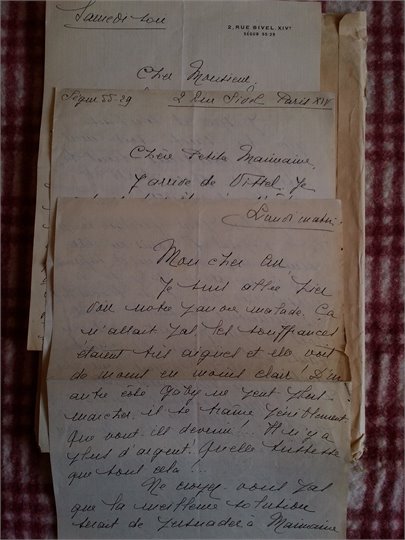 Samedi soir
2, RUE BIVEL XIVᵉ
SÉGUR 55-29
Cher Monsieur,
Ségur 55-29 2 Rue Paris XIV
Chère Petite Marraine,
J'arrive de Vittel. Je
Lundi matin
Mon cher
Je suis allée hier
voir notre pauvre malade. Ça
n'allait pas les souffrances
étaient très aigues et elle voit
de moins en moins clair! D'un
autre côté Gaby ne peut plus
marcher, il se traine péniblement
que vont-ils devenir!.. Il n'y a
plus d'argent. Quelle tristesse
que tout cela!..
Ne croyez-vous pas
que la meilleure solution
serait de persuader à Marraine